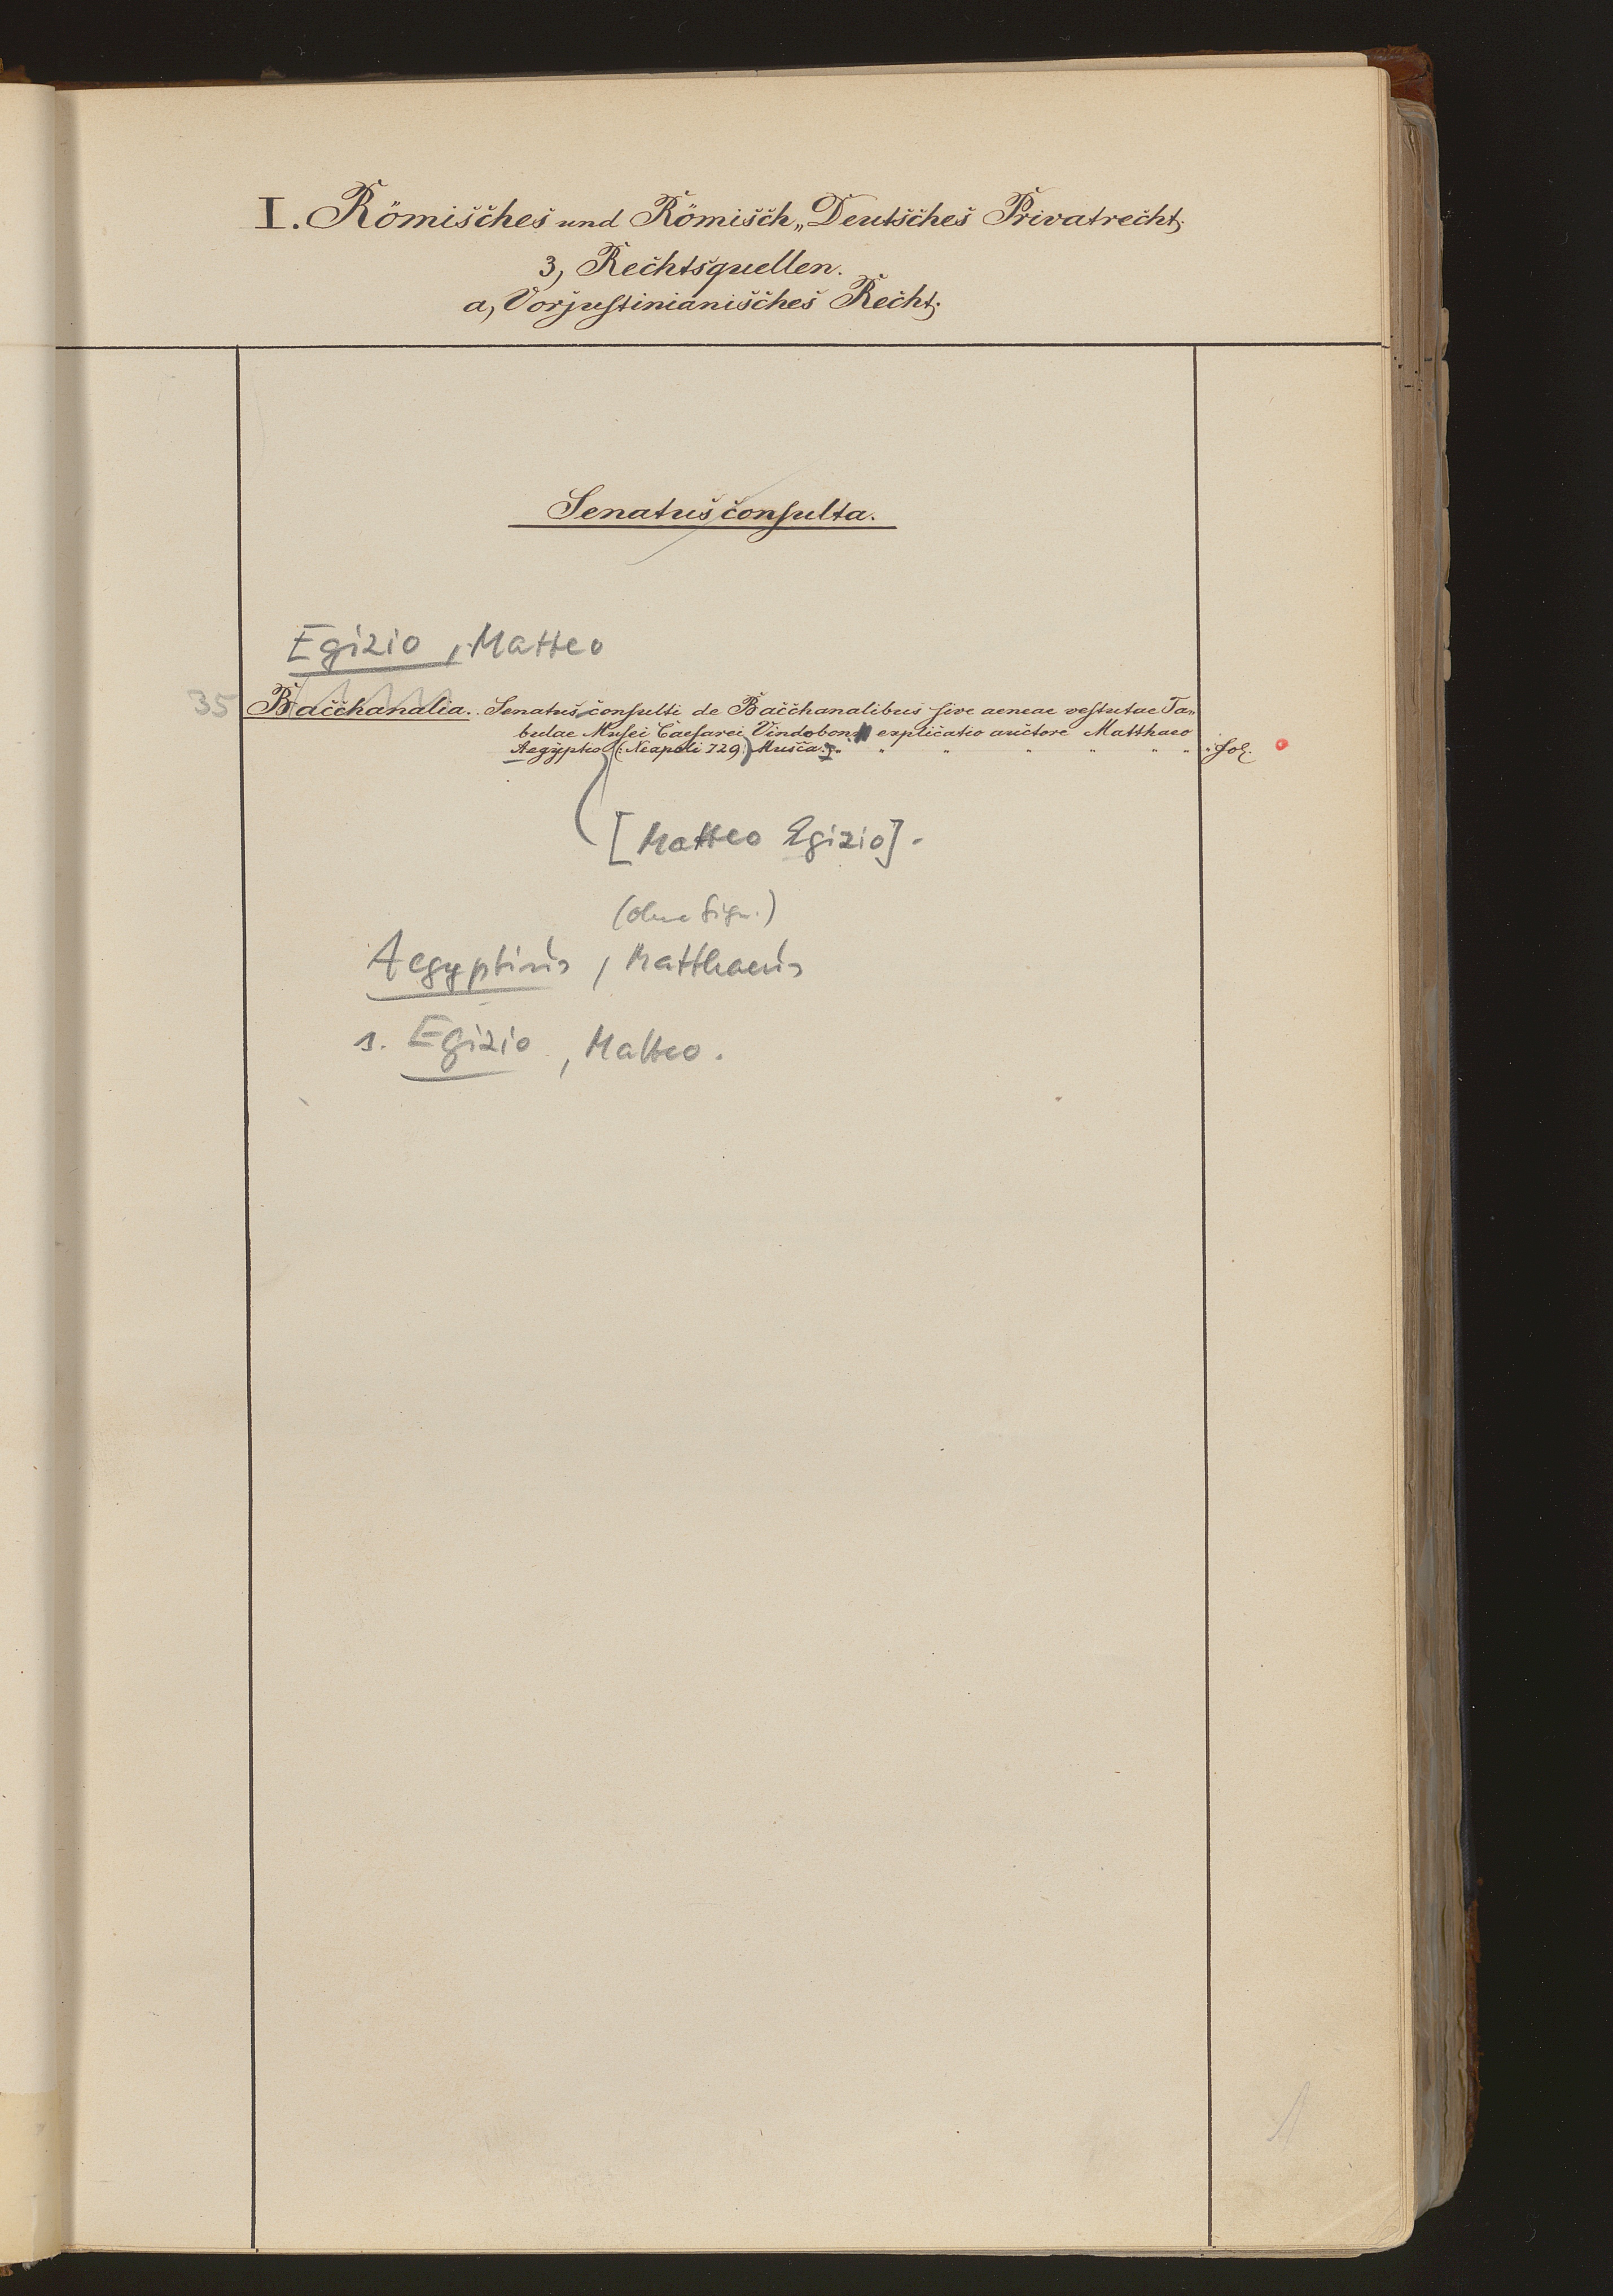 I. Römisches und Römisch-Deutsches Privatrecht;
3, Rechtsquellen.
a, Vorjustinianisches Recht;
Senatus consulta.
Egizio, Matteo
35 Bacchanalia. Senatus consulti de Bacchanalibus sive aeneae vestutae Ta-
bulae Musei Caesarei Vindobon explicatio auctore Matthaeo
Aegyptio (: Neapoli 729) Musca. " " " " " " fol.
[Matteo Egizio].
(ohne Sign.)
Aegyptius, Matthaeus
s. Egizio, Matteo.
1